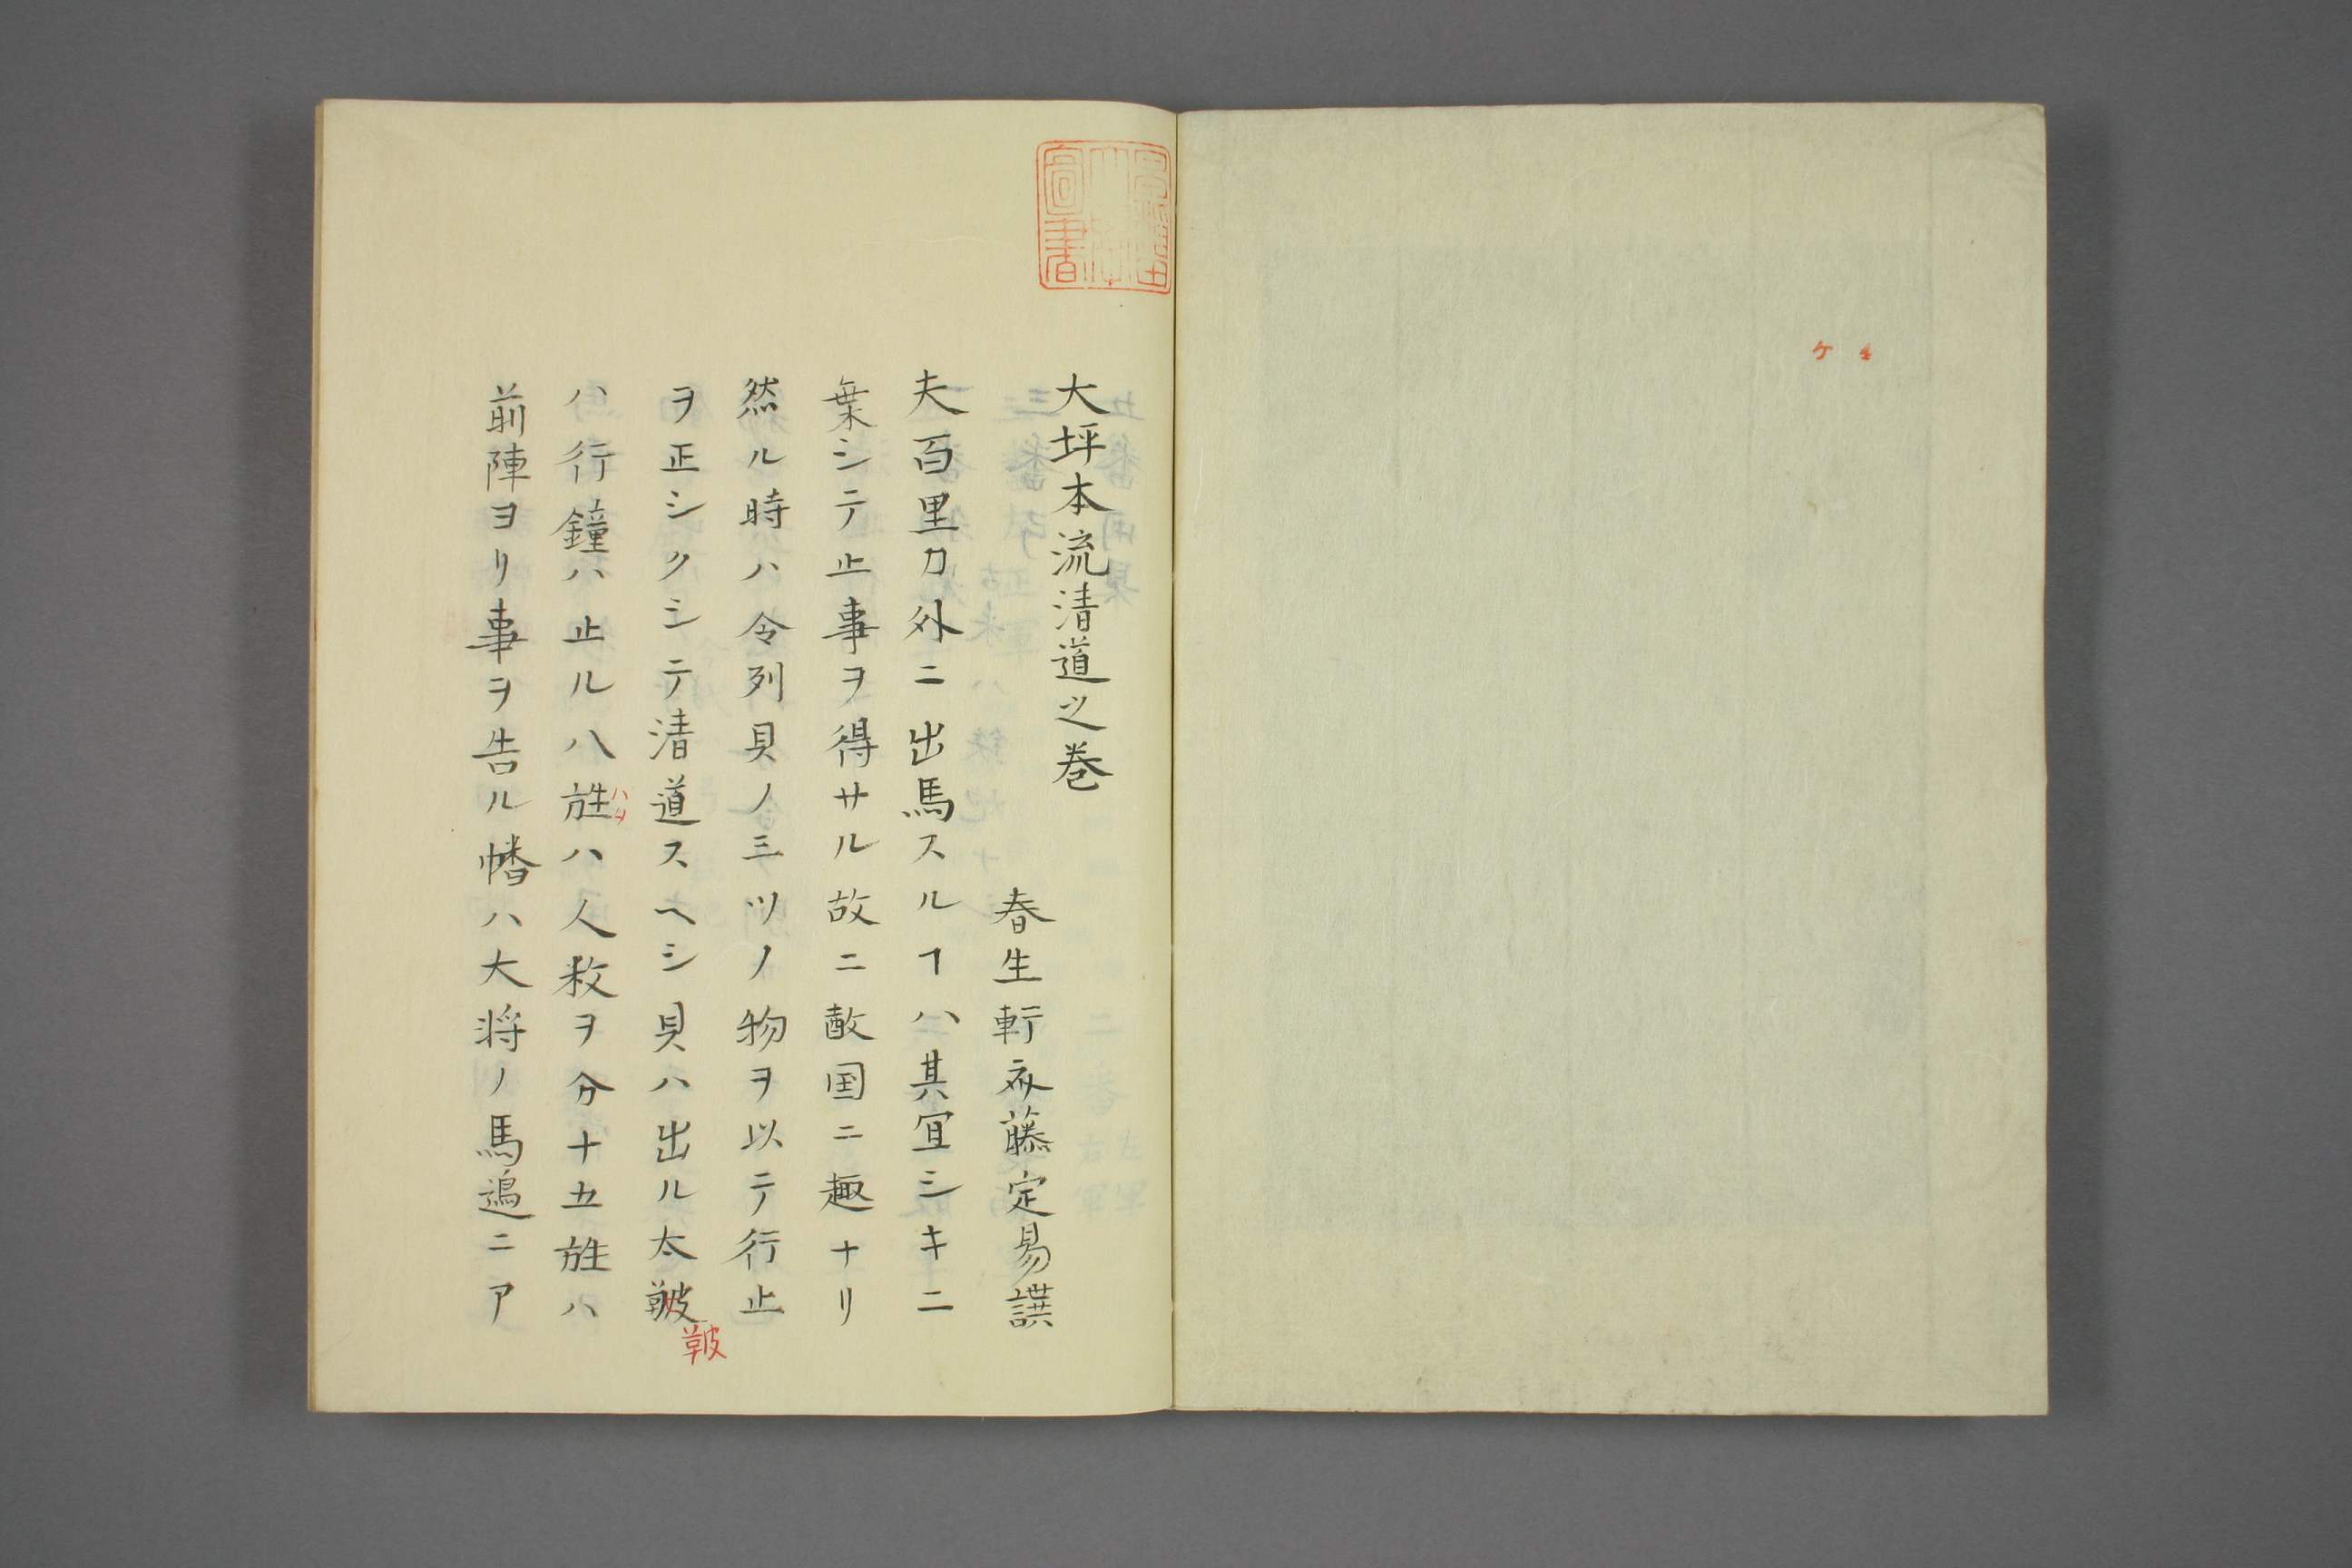 大坪本流清道之巻
春生軒斎藤定易譔
夫百里カ外ニ出馬スルヿハ其宜シキニ
葉シテ止事ヲ得サル故ニ敵国ニ趣ナリ
然ル時ハ令列貝ノ三ツノ物ヲ以テ行止
ヲ正シクシテ清道スヘシ貝ハ出ル太皷
皷
ハ行鐘ハ止ル八旌ハ人数ヲ分十五旌ハ
ハタ
前陣ヨリ事ヲ告ル幡ハ大将ノ馬過ニア